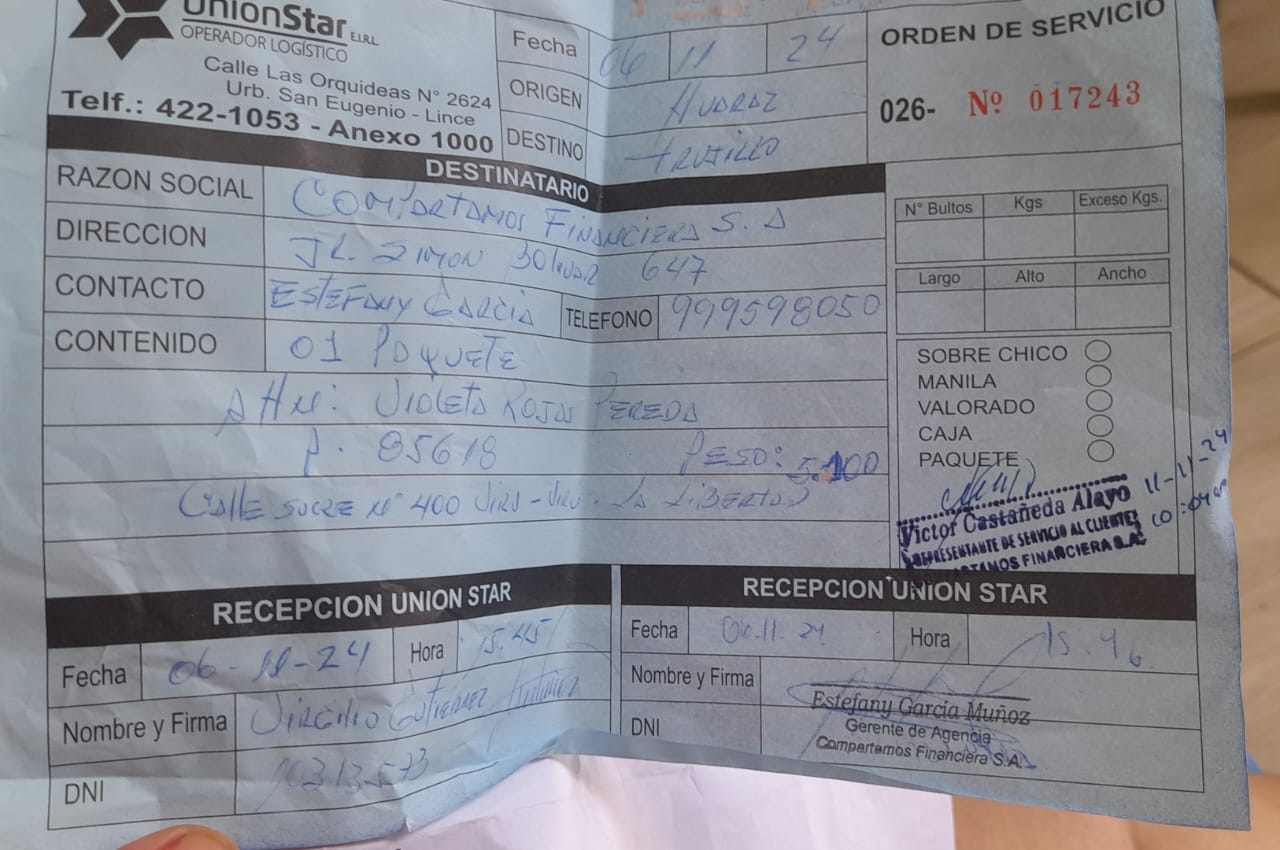 UnionStar E.I.R.L
OPERADOR LOGÍSTICO
Calle Las Orquideas N° 2624
Urb. San Eugenio - Lince
Telf.: 422-1053 - Anexo 1000
Fecha 06 11 24
ORIGEN HUARAZ
DESTINO TRUJILLO
ORDEN DE SERVICIO
026- Nº 017243
DESTINATARIO
RAZON SOCIAL COMPARTAMOS FINANCIERA S.A
DIRECCION JR. SIMON BOLIVAR 647
CONTACTO ESTEFANY GARCIA TELEFONO 999598050
CONTENIDO 01 PAQUETE
Attn: VIOLETA ROJAS PEREDA
P. 85618 PESO: 5.100
CALLE SUCRE N° 400 VIRU - VIRU - LA LIBERTAD
N° Bultos Kgs Exceso Kgs.
Largo Alto Ancho
SOBRE CHICO
MANILA
VALORADO
CAJA
PAQUETE
Victor Castañeda Alayo 11-11-24
REPRESENTANTE DE SERVICIO AL CLIENTE 10:04am
COMPARTAMOS FINANCIERA S.A.
RECEPCION UNION STAR
Fecha 06-11-24 Hora 15:45
Nombre y Firma VIRGILIO GUTIERREZ
DNI
RECEPCION UNION STAR
Fecha 06.11.24 Hora 15.46
Nombre y Firma
Estefany Garcia Muñoz
Gerente de Agencia
Compartamos Financiera S.A.
DNI